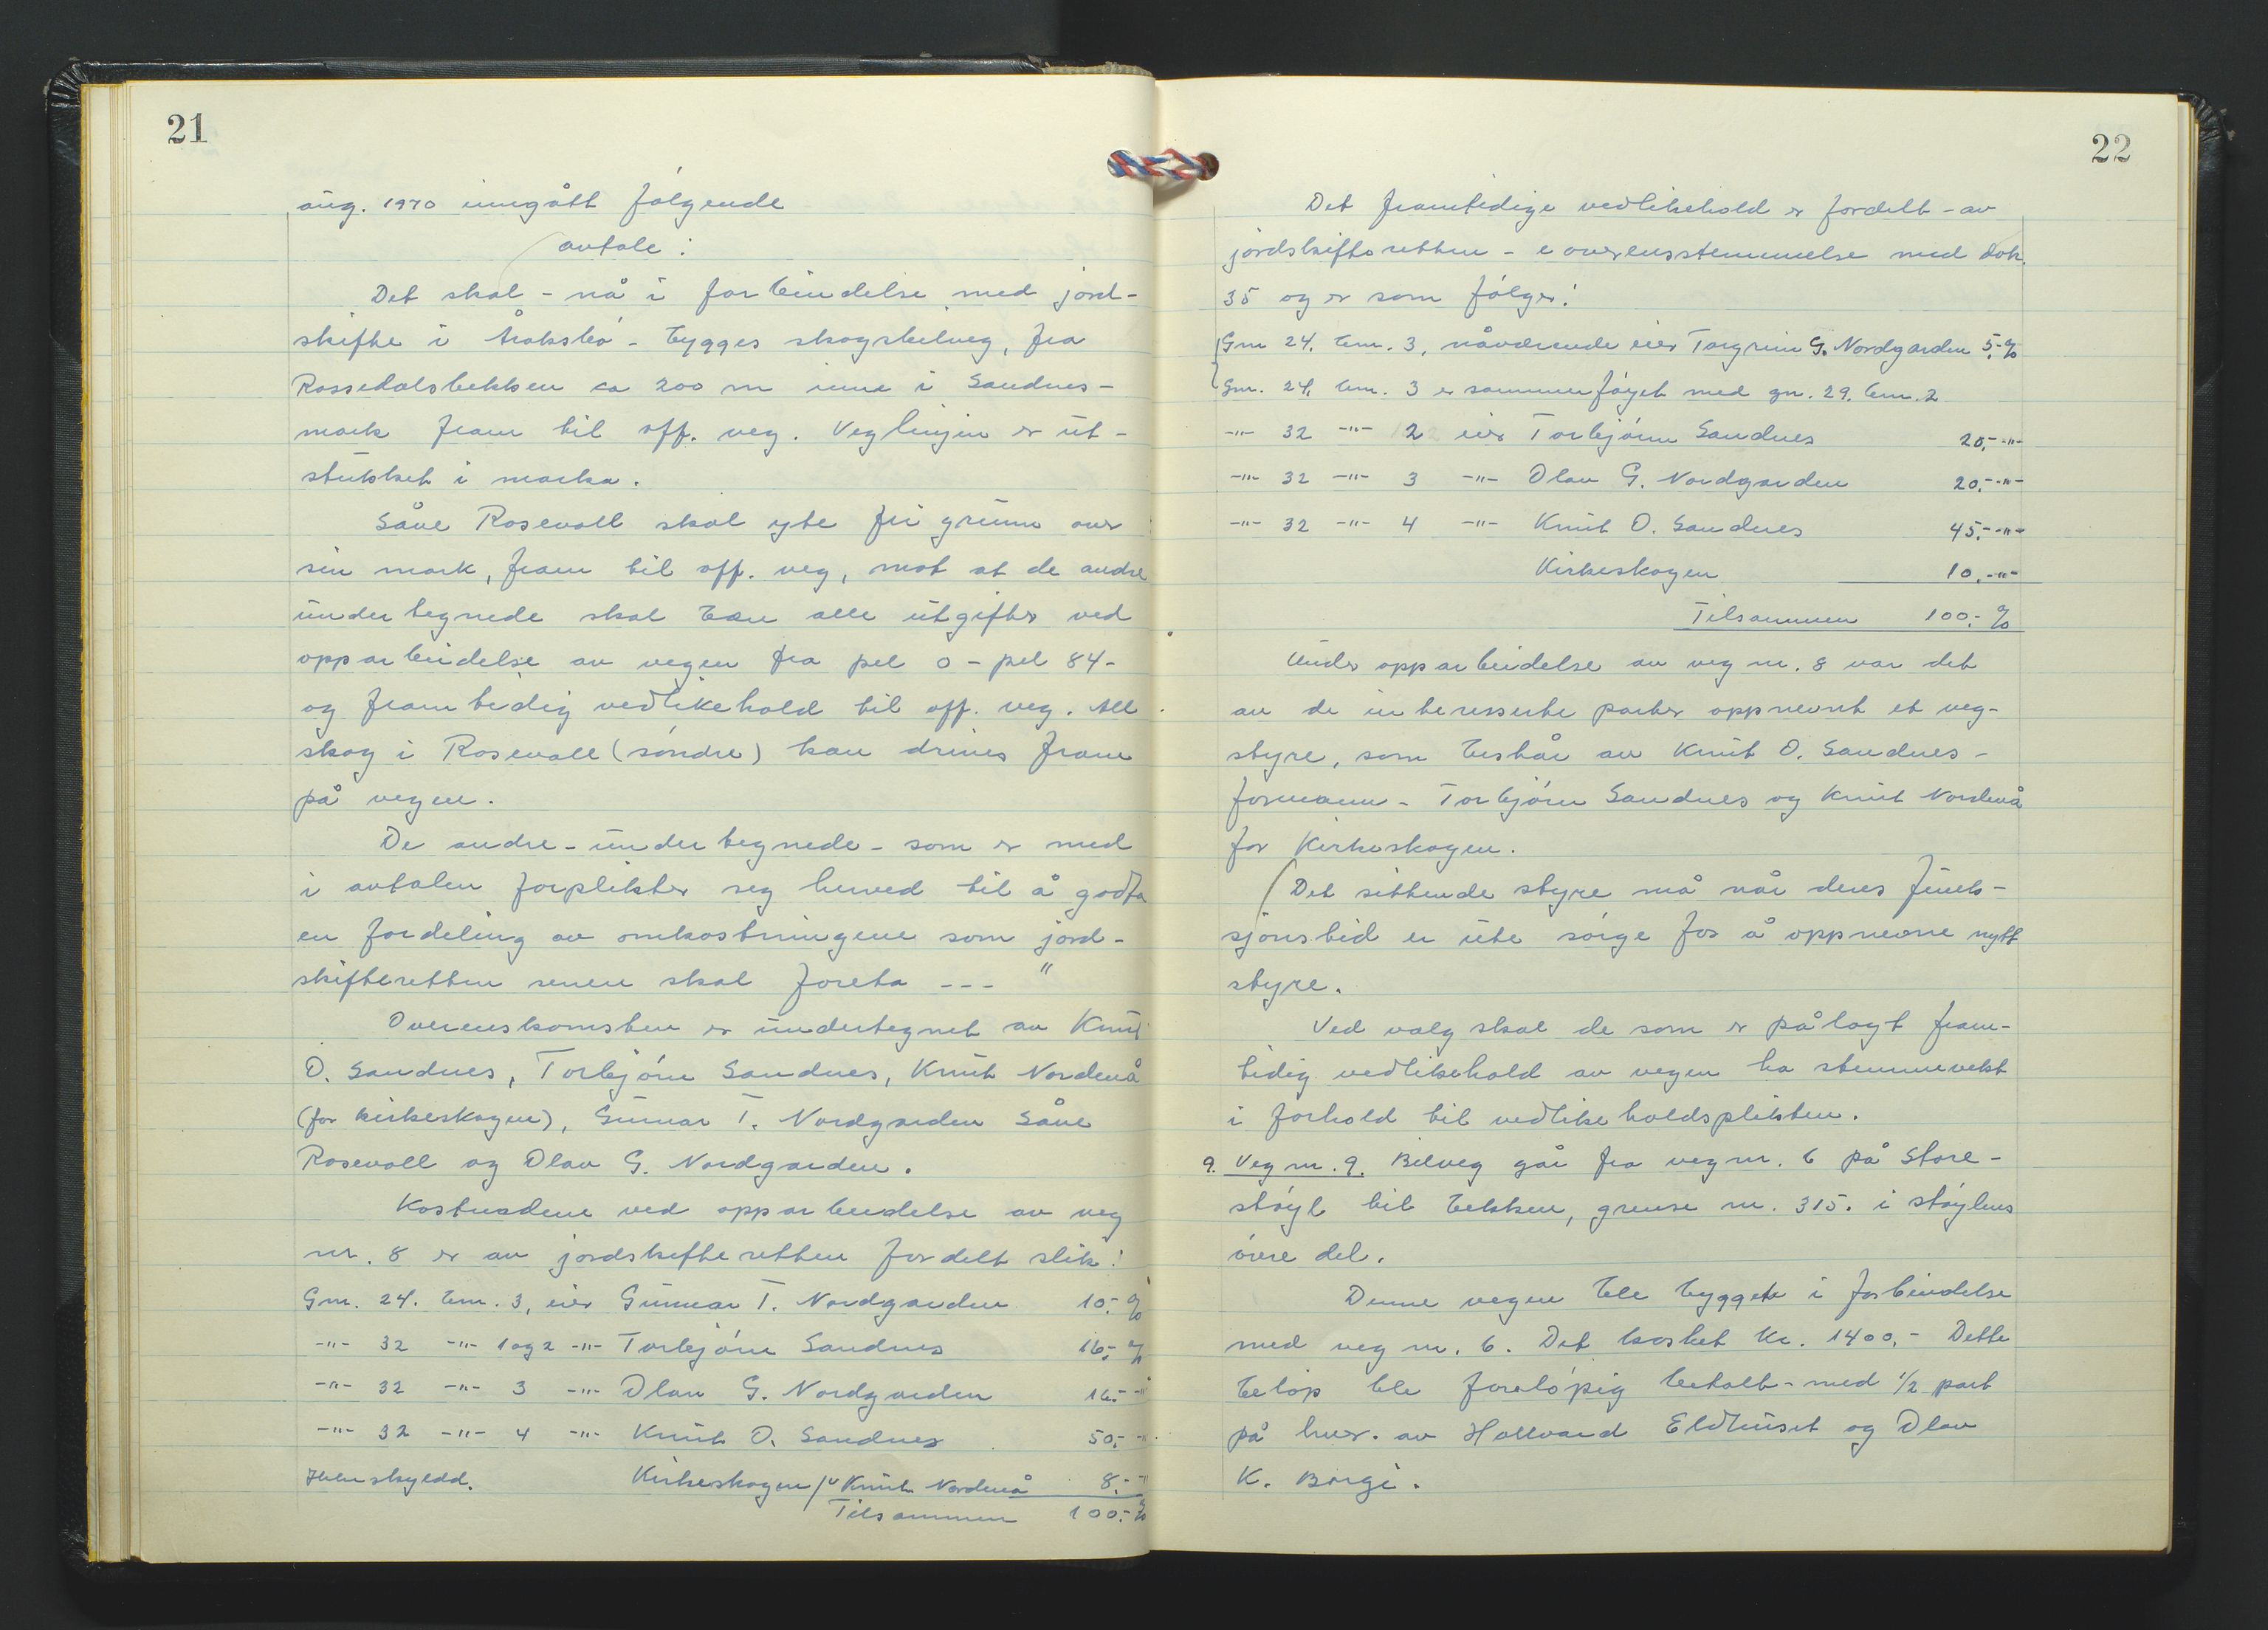 21
aug. 1970 inngått følgende
avtale:
Det skal - nå i forbindelse med jord-
skifte i Åraksbø - bygges skogsbilveg, fra
Rossedalsbekken ca 200 m inne i Sandnes-
mark fram til off. veg. Veglinjen er ut-
stukket i marka.
Såve Rosevoll skal yte fri grunn over
sin mark, fram til off. veg, mot at de andre
undertegnede skal bære alle utgifter ved
opparbeidelse av vegen fra pel 0 - pel 84 -
og framtidig vedlikehold til off. veg. All
skog i Rosevoll (søndre) kan drives fram
på vegen.
De andre - undertegnede - som er med
i avtalen forplikter seg herved til å godta
en fordeling av omkostningene som jord-
skifteretten senere skal foreta --- "
Overenskomsten er undertegnet av Knut
O. Sandnes, Torbjørn Sandnes, Knut Nordenå
(for kirkeskogen), Gunnar T. Nordgarden Såve
Rosevoll og Olav G. Nordgarden.
Kostnadene ved opparbeidelse av veg
nr. 8 er av jordskifteretten fordelt slik:
Gnr. 24. bnr. 3, eier Gunnar T. Nordgarden 10,- %
-"- 32 -"- 1 og 2 -"- Torbjørn Sandnes 16,- %
-"- 32 -"- 3 -"- Olav G. Nordgarden 16,- -"-
-"- 32 -"- 4 -"- Knut O. Sandnes 50,- -"-
Uten skyld. Kirkeskogen / v Knut Nordenå 8,- -"-
Tilsammen 100,- %
22
Det framtidige vedlikehold er fordelt - av
jordskifteretten - i overensstemmelse med dok.
35 og er som følger:
Gnr 24, bnr. 3, nåværende eier Torgrim G. Nordgarden 5,- %
Gnr. 24, bnr. 3 er sammenføyet med gnr. 29, bnr. 2
-"- 32 -"- 2 eier Torbjørn Sandnes 20,- -"-
-"- 32 -"- 3 -"- Olav G. Nordgarden 20,- -"-
-"- 32 -"- 4 -"- Knut O. Sandnes 45,- -"-
Kirkeskogen 10,- -"-
Tilsammen 100,- %
Under opparbeidelse av veg nr. 8 var det
av de interesserte parter oppnevnt et veg-
styre, som består av Knut O. Sandnes -
formann - Torbjørn Sandnes og Knut Nordenå
for Kirkeskogen.
(Det sittende styre må når deres funk-
sjonstid er ute sørge for å oppnevne nytt
styre.
Ved valg skal de som er pålagt fram-
tidig vedlikehold av vegen ha stemmevekt
i forhold til vedlikeholdsplikten.
9. Veg nr. 9. Bilveg går fra veg nr. 6 på Store-
støyl til bekken, grense nr. 315. i støylens
øvre del.
Denne vegen ble bygget i forbindelse
med veg nr. 6. Det kostet kr. 1400,- Dette
beløp ble foreløpig betalt - med 1/2 part
på hver. av Hallvard Eldhuset og Olav
K. Borgi.